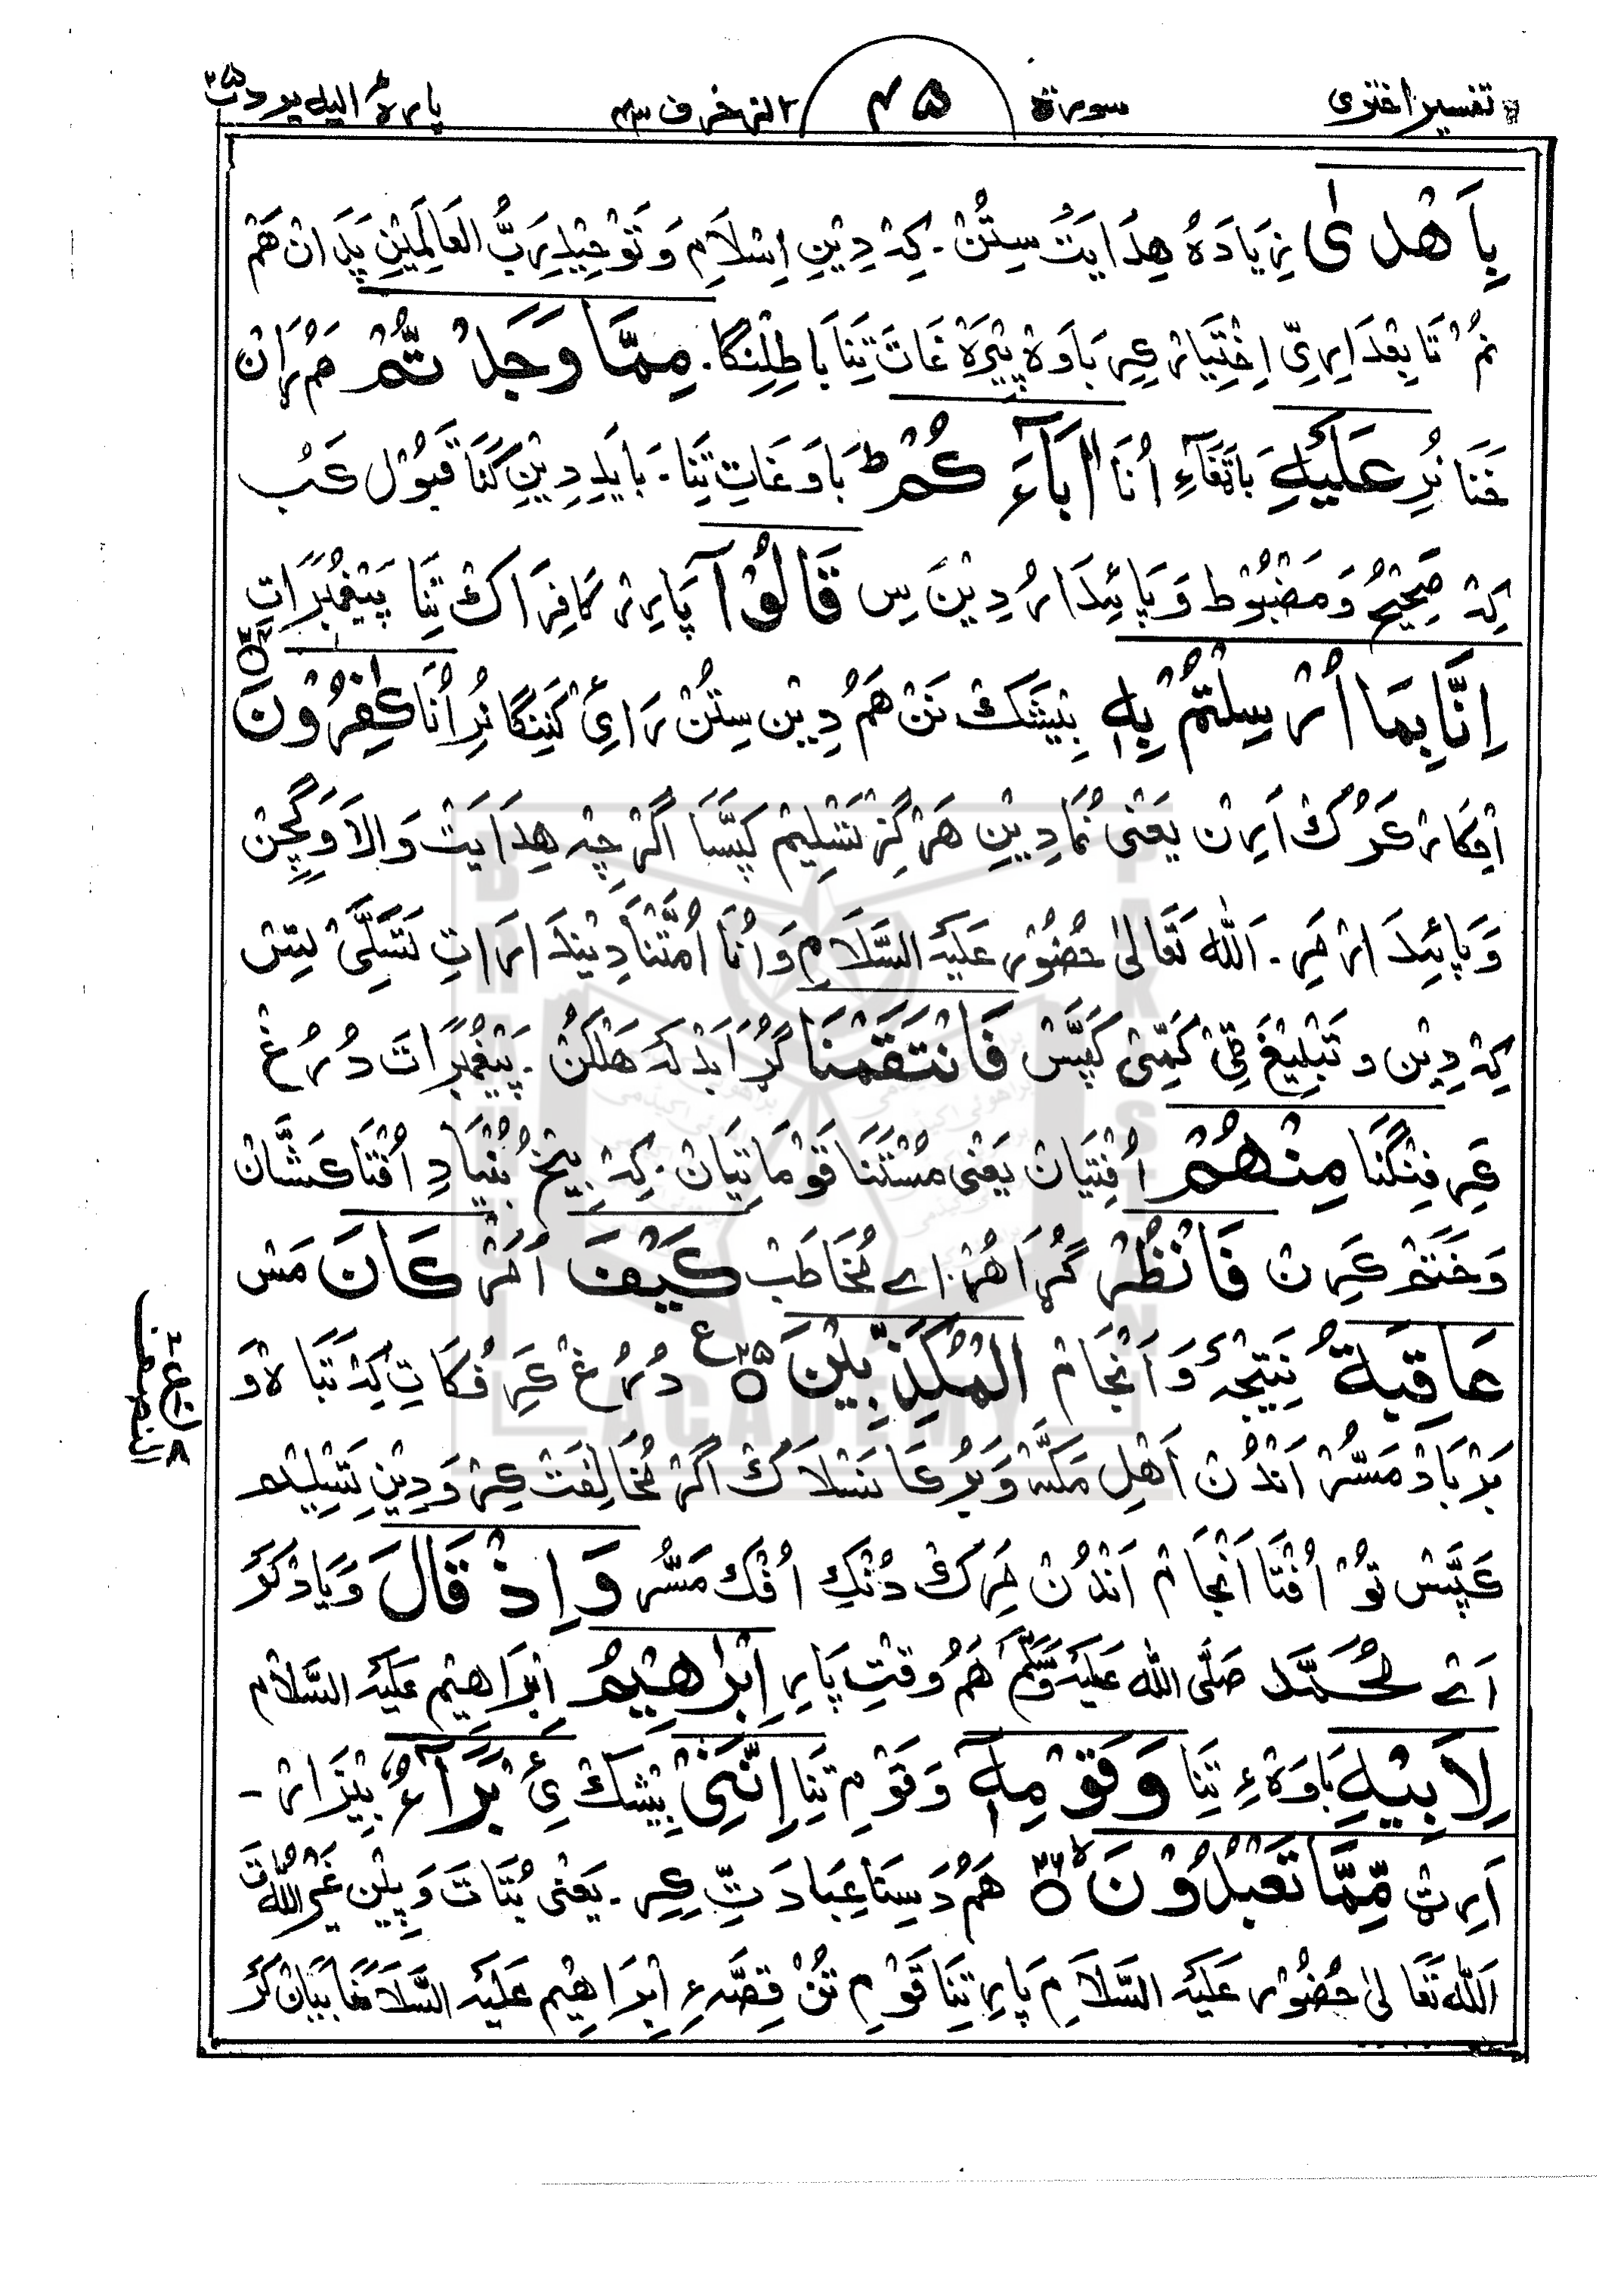 تفسیر اختری سورۃ ۴۵ الزخرف ۴۳ پارہٴ الیہ یرد ۲۵
بِاَهْدٰى زِیَادَہ هِدَایَتْ سِتُنْ۔ کِہْ دِیْنِ اِسْلَامِ وَ تَوْحِیْدِ رَبُّ العَالَمِیْنِ پِدَ انْ هَمْ
نُمْ تَابِعْدَ ارِیِّ اِخْتِیَارْ عِرِ بَاوَہْ پِیْرَہْ غَاتَ تَنَا بَاطِلِنْگَا۔ مِمَّا وَجَدْ تُّمْ مَرَانْ
خَنَا نُرِ عَلَیْهِ بَاتَغَآءِ اُنَا اٰبَآءَ كُمْ ؕ بَاوَغَاتِ تَنَا۔ بَایَدِ دِیْنِ کَنَا قَبُوْل عَبْ
کِہْ صَحِیْحُ وَ مَضْبُوْط وَ پَائِدَارُ دِیْنَ سِ قَالُوْۤا پَارِرْ کَافِرَاکْ تَنَا پَیْغَمْبَرَاتِ
اِنَّا بِمَاۤ اُرْسِلْتُمْ بِهٖ بِیْشَکْ نَنْ هَمُ دِیْن سِتُنْ رَائِیْ کَنِنْگَا نُرِ اُنَا كٰفِرُوْنَ ۝۲۴
اِنْکَارْ عَرُکْ اَرِنْ یَعْنٰی نُمَا دِیْنِ هَرْگِزْ تَسْلِیْم کَپَّسَا اگَرْچِہ هِدَایَتْ وَالَا وَ گِچِنْ
وَ پَائِدَ ارْ مَرِ۔ اَللّٰہ تَعَالیٰ حُضُوْر عَلَیْہِ السَّلَامِ وَ اُنَا اُمَّتْنَا دِیْنْدَ ارَاتِ تَسَلِّیْ تِسْ
کِہْ دِیْن و تَبْلِیْغَ ٹِی کَمِیّ کَپَّسْ فَانْتَقَمْنَا گُڑَا بَدْلَہ هَلْکُنْ۔ پَیْغَمْبَرَاتَ دُرُغْ
عَرِفِنْگَنَا مِنْهُمْ اُفْتِیَانْ یَعْنٰی مُسْتَنَا قَوْمَاتِیَانْ۔ کِہْ بِیْخُ بُنْیَادِ اُفْتَا کَشَّانْ
وَ خَتَمْ عَرِنْ فَانْظُرْ گُڑَا هُرْ اے مُخَاطَبْ كَیْفَ اَمَرْ كَانَ مَسْ
عَاقِبَةُ نَتِیْجَہٴ وَ اَنْجَامْ الْمُكَذِّبِیْنَ ۝۲۵ ع دُرُغْ عَرِفُکَاتِ کِہْ تَبَاہْ وَ
بَرْبَادْ مَسُّرْ اَنْدُنْ اَهْلِ مَکَّہْ وَ بَرُعَا نَسْلَاکْ اگَرْ مُخَالِفَتْ عِرْ وَ دِیْنِ تَسْلِیْم
عَپَّسْ تَوْ اُفْتَا اَنْجَامْ اَنْدُنْ مَرِکْ دُنْکِ اُفْکْ مَسُّر وَاِذْ قَالَ وَ یَادْ کَرَ
اَے مُحَمَّد صَلَّی اللّٰہ عَلَیْہِ وَسَلَّمْ هَمُ وَقْتِ پَارِ اِبْرٰهِیْمُ اِبْرَاهِیْم عَلَیْہِ السَّلَامْ
لِاَبِیْهِ بَاوَہْ ءِ تَنَا وَقَوْمِهٖۤ وَ قَوْمِ تَنَا اِنَّنِیْ بِیْشَکْ یْ بَرَآءٌ بِیْزَارْ ۔
اَرِٹْ مِّمَّا تَعْبُدُوْنَ ۝۲۶ لا هَمُ دَسِنَا عِبَادَتِّ عِرِ۔ یَعْنٰی بُتَاتَ وَ پِلِین غَیْرُ اللّٰہ تَ
اَللّٰہ تَعَالیٰ حُضُوْر عَلَیْہِ السَّلَامِ پَارِ تَنَا قَوْمِ تُنْ قِصَّہ ءِ اِبْرَاهِیْم عَلَیْہِ السَّلَامْنَا بَیَانْ کَرْ
النصف
BRAHUI ACADEMY PAKISTAN